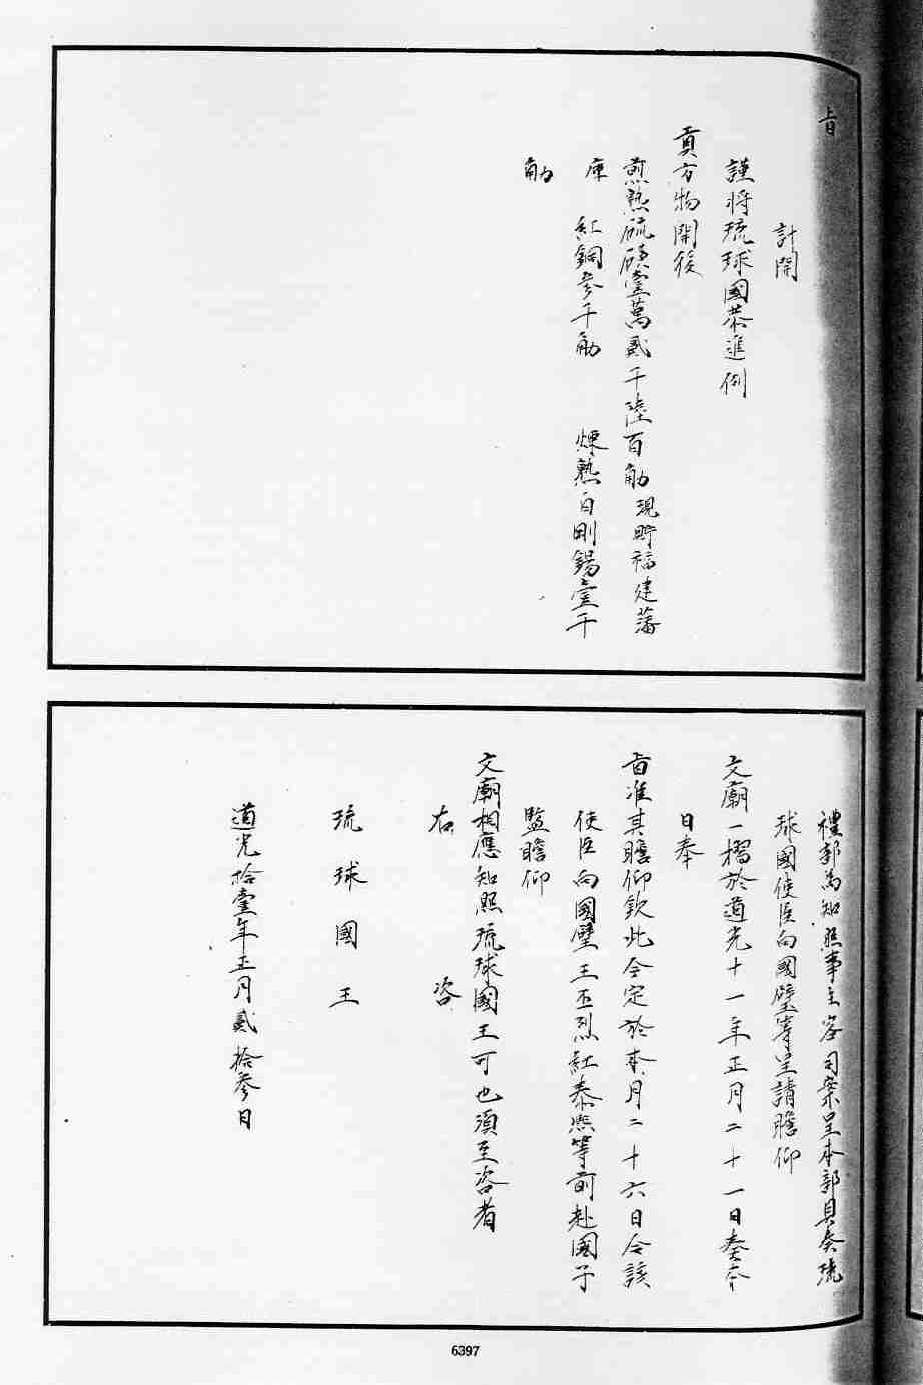 旨
計開
謹將琉球國恭進例
貢方物開後
煎熟硫磺壹萬貳千陸百觔現貯福建藩
庫　紅銅參千觔　煉熟白剛錫壹千
觔
禮部為知照事主客司案呈本部具奏琉
球國使臣向國璧等呈請瞻仰
文廟一摺於道光十一年正月二十一日奏本
日奉
旨准其瞻仰欽此今定於本月二十六日令該
使臣向國璧王丕烈紅泰熙等前赴國子
監瞻仰
文廟相應知照琉球國王可也須至咨者
右　咨
琉球國王
道光拾壹年正月貳拾參日
6397